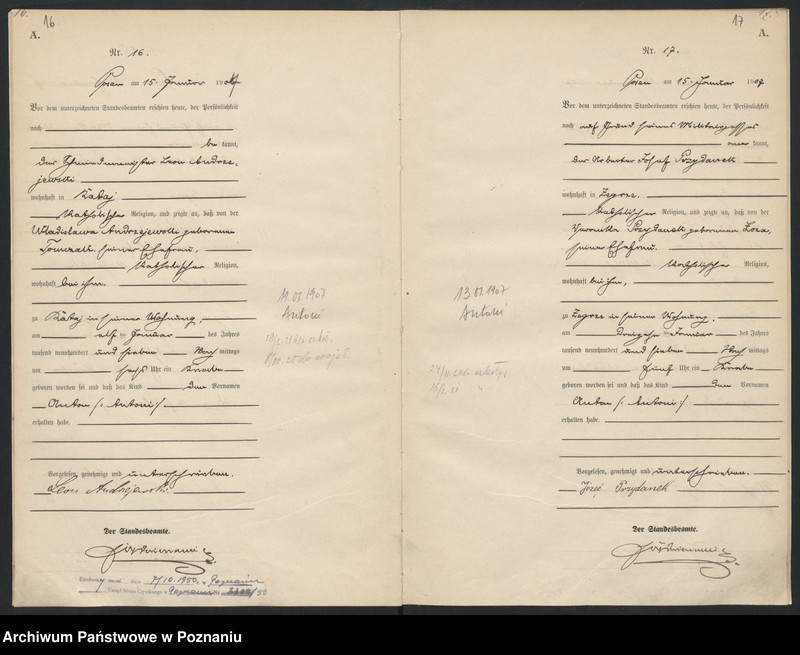 16
A.
Nr. 16.
Posen am 15. Januar 1907
Vor dem unterzeichneten Standesbeamten erschien heute, der Persönlichkeit
nach
be kannt,
der Schmiedemeister Leon Andrze-
jewski
wohnhaft in Rataj
katholischer Religion, und zeigte an, daß von der
Wladislawa Andrzejewski geborenen
Tomczak, seiner Ehefrau,
katholischer Religion,
wohnhaft bei ihm,
zu Rataj in seiner Wohnung,
am elf ten Januar des Jahres
tausend neunhundert und sieben Nach mittags
um sechs Uhr ein Knabe
geboren worden sei und daß das Kind den Vornamen
Anton /: Antoni :/
erhalten habe.
Vorgelesen, genehmigt und unterschrieben.
Leon Andrzejewski
Der Standesbeamte.
7/10. 1950, w Poznaniu
Urząd Stanu Cywilnego w Poznaniu
11.01.1907
Antoni
17
A.
Nr. 17.
Posen am 15. Januar 1907
Vor dem unterzeichneten Standesbeamten erschien heute, der Persönlichkeit
nach auf Grund seines Militairpasses
kannt,
der Arbeiter Josef Przydanek
wohnhaft in Zegrze.
katholischer Religion, und zeigte an, daß von der
Veronika Przydanek geborenen
seiner Ehefrau
katholischer Religion,
wohnhaft bei ihm,
zu Zegrze in seiner Wohnung,
am dreizehn ten Januar des Jahres
tausend neunhundert und sieben Nach mittags
um fünf Uhr ein Knabe
geboren worden sei und daß das Kind den Vornamen
Anton /: Antoni :/
erhalten habe.
Vorgelesen, genehmigt und unterschrieben.
Józef Przydanek
Der Standesbeamte.
13.01.1907
Antoni
Archiwum Państwowe w Poznaniu